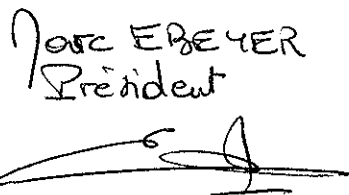 Marc EBEYER
Président